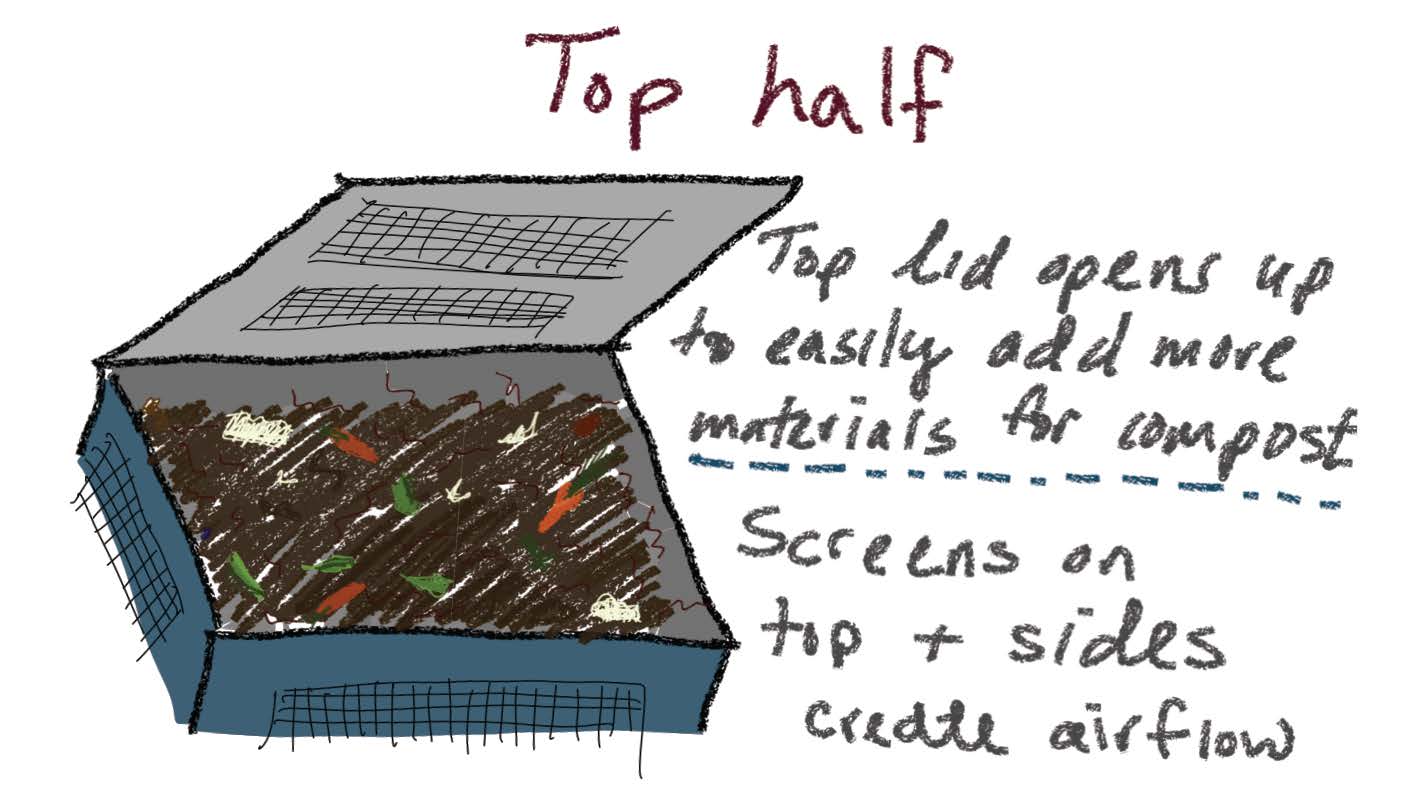 Top half
Top lid opens up
to easily add more
materials for compost
Screens on
top + sides
create airflow